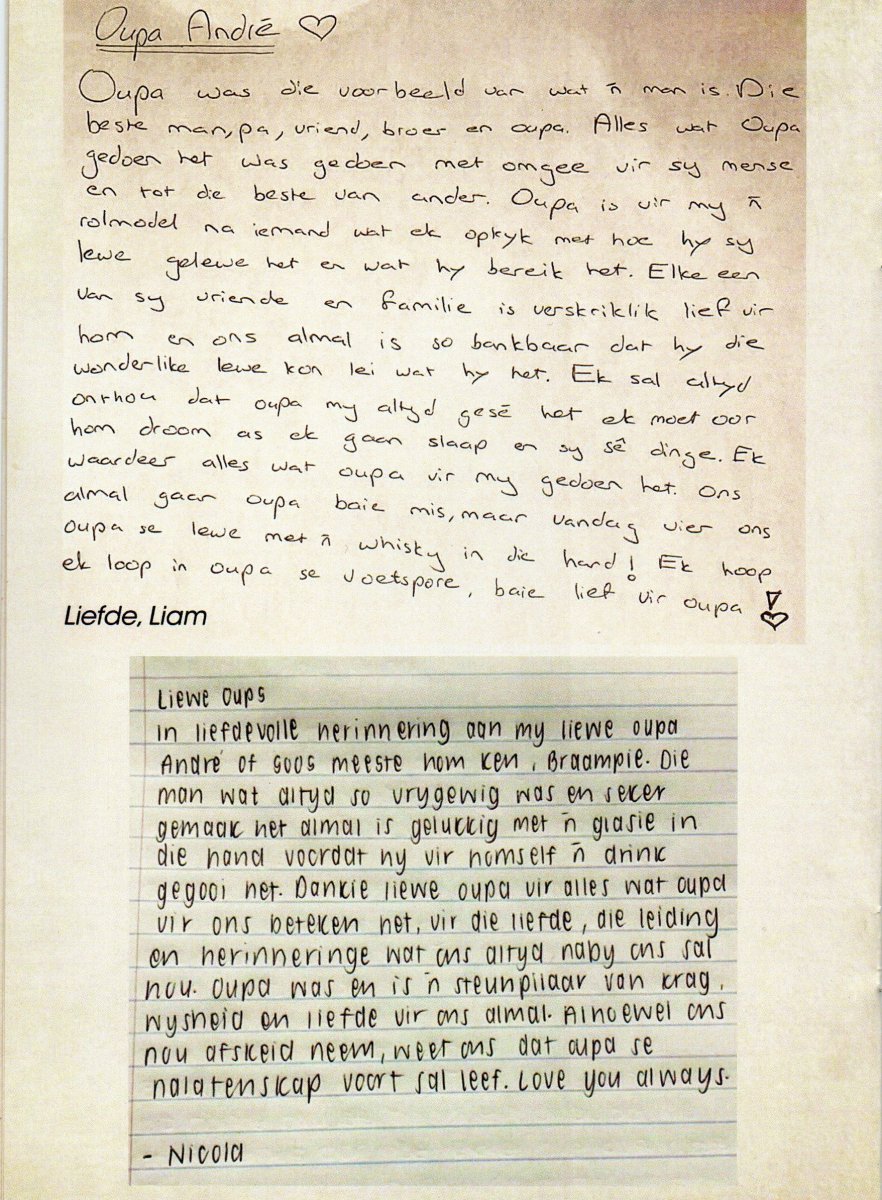 Oupa André ♡
Oupa was die voorbeeld van wat 'n man is. Die
beste man, pa, vriend, broer en oupa. Alles wat Oupa
gedoen het was gedoen met omgee vir sy mense
en tot die beste van ander. Oupa is vir my 'n
rolmodel na iemand wat ek opkyk met hoe hy sy
lewe gelewe het en wat hy bereik het. Elke een
van sy vriende en familie is verskriklik lief vir
hom en ons almal is so bankbaar dat hy die
wonderlike lewe kon lei wat hy het. Ek sal altyd
onthou dat oupa my altyd gesê het ek moet oor
hom droom as ek gaan slaap en sy sê dinge. Ek
waardeer alles wat oupa vir my gedoen het. Ons
almal gaan oupa baie mis, maar vandag vier ons
oupa se lewe met 'n whisky in die hand! Ek hoop
ek loop in oupa se voetspore, baie lief vir oupa! ♡
Liefde, Liam
Liewe Oups
In liefdevolle herinnering aan my liewe oupa
André of soos meeste hom ken, Braampie. Die
man wat altyd so vrygewig was en seker
gemaak het almal is gelukkig met 'n glasie in
die hand voordat hy vir homself 'n drink
gegooi het. Dankie liewe oupa vir alles wat oupa
vir ons beteken het, vir die liefde, die leiding
en herinneringe wat ons altyd naby ons sal
hou. Oupa was en is 'n steunpilaar van krag,
wysheid en liefde vir ons almal. Alhoewel ons
nou afskeid neem, weet ons dat oupa se
nalatenskap voort sal leef. Love you always.
- Nicola